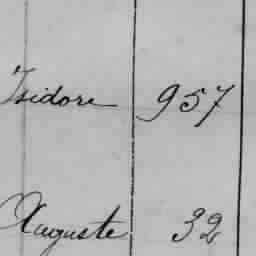 Isidore 957
Auguste 32